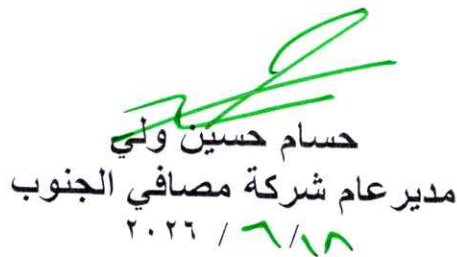 حسام حسين ولي
مدير عام شركة مصافي الجنوب
١٨/ ٦ / ٢٠٢٦